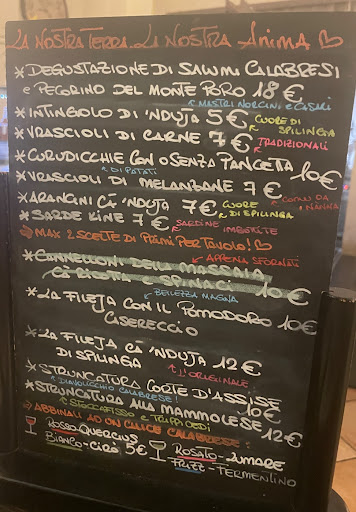 La Nostra Terra.. La Nostra Anima ♡
* Degustazione di Salumi Calabresi
e Pecorino del Monte Poro 18€
Mastri Norcini e Casari
* Intingolo di 'Nduja 5€ Cuore di
Spilinga
* Vrascioli di Carne 7€ Tradizionali
* Curudicchie con o senza Pancetta 10€
di Patati
* Vrascioli di Melanzane 7€ Com'
Nanna
* Arancini ca 'Nduja 7€ Cuore
di Spilinga
* Sarde Kine 7€ Sardine
Imbottite
→ Max 2 scelte di Primi per Tavolo! ♡
Appena Sfornati
* Cannelloni della Massaia
ca Ricotta 10€
Bellezza Magna
* La Fileja con il Pomodoro 10€
Casereccio
* La Fileja ca 'Nduja 12€
di Spilinga L'Originale
* Struncatura Corte d'Assise
Diavolicchio Calabrese! 10€
* Struncatura alla Mammolese 12€
Stoccafisso e
→ Abbinali ad un Calice Calabrese:
Rosso-Quercius
Bianco-Cirò 5€ Rosato-Zumare
Frizz-Fermentino